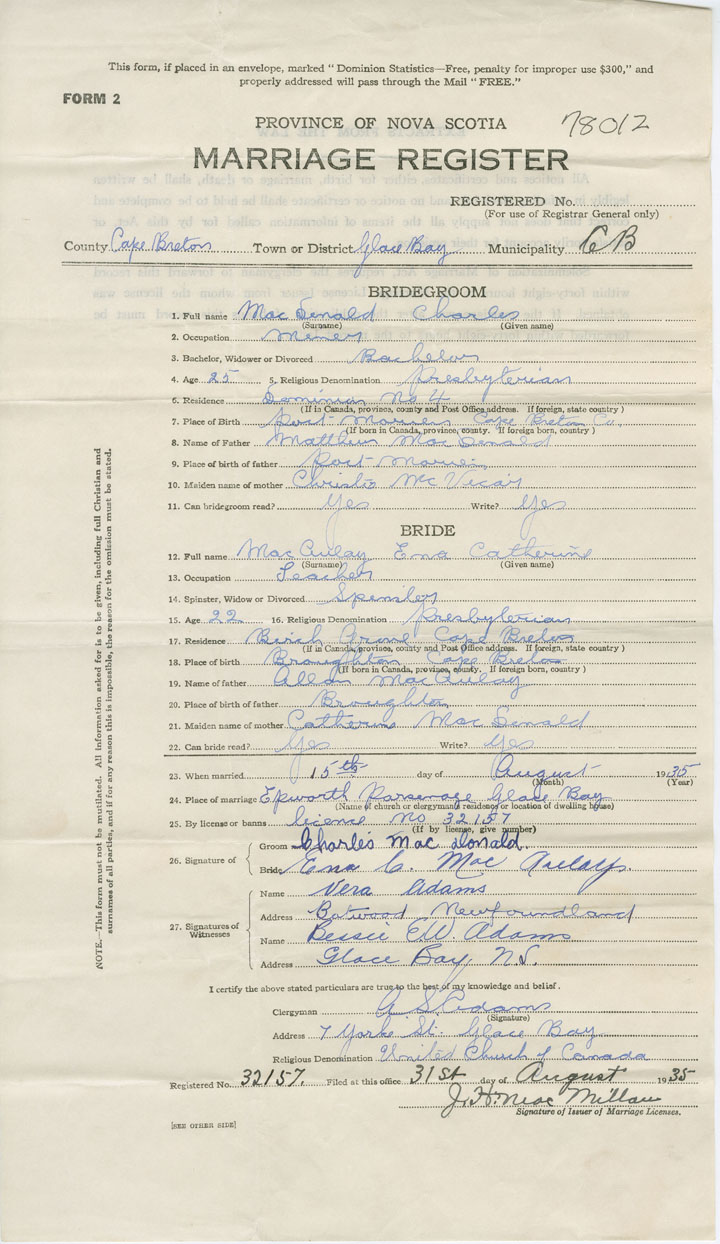 This form, if placed in an envelope, marked "Dominion Statistics—Free, penalty for improper use $300," and
properly addressed will pass through the Mail "FREE."
FORM 2
PROVINCE OF NOVA SCOTIA 78012
MARRIAGE REGISTER
REGISTERED No.
(For use of Registrar General only)
County Cape Breton Town or District Glace Bay Municipality CB
BRIDEGROOM
1. Full name MacDonald Charles
(Surname) (Given name)
2. Occupation Miner
3. Bachelor, Widower or Divorced Bachelor
4. Age 25 5. Religious Denomination Presbyterian
6. Residence Dominion No 4
(If in Canada, province, county and Post Office address. If foreign, state country)
7. Place of Birth Port Morien Cape Breton Co.
(If born in Canada, province, county. If foreign born, country)
8. Name of Father Matthew MacDonald
9. Place of birth of father Port Morien
10. Maiden name of mother Christie McVicar
11. Can bridegroom read? Yes Write? Yes
BRIDE
12. Full name MacAulay Ena Catherine
(Surname) (Given name)
13. Occupation Teacher
14. Spinster, Widow or Divorced Spinster
15. Age 22 16. Religious Denomination Presbyterian
17. Residence Birch Grove Cape Breton
(If in Canada, province, county and Post Office address. If foreign, state country)
18. Place of birth Broughton Cape Breton
(If born in Canada, province, county. If foreign born, country)
19. Name of father Allan MacAulay
20. Place of birth of father Broughton
21. Maiden name of mother Catherine MacDonald
22. Can bride read? Yes Write? Yes
23. When married 15th day of August 1935
(Month) (Year)
24. Place of marriage Epworth Parsonage Glace Bay
(Name of church or clergyman's residence or location of dwelling house)
25. By license or banns licence No 32157
(If by license, give number)
26. Signature of
Groom Charles Mac Donald.
Bride Ena C. Mac Aulay.
27. Signatures of Witnesses
Name Vera Adams
Address Botwood Newfoundland
Name Bessie E.W. Adams
Address Glace Bay, N.S.
I certify the above stated particulars are true to the best of my knowledge and belief.
Clergyman A S Adams
(Signature)
Address 7 Yorke St. Glace Bay
Religious Denomination United Church of Canada
Registered No. 32157. Filed at this office 31st day of August 1935
J. H. Mac Millan
Signature of Issuer of Marriage Licenses.
[SEE OTHER SIDE]
NOTE.—This form must not be mutilated. All information asked for is to be given, including full Christian and
surnames of all parties, and if for any reason this is impossible, the reason for the omission must be stated.